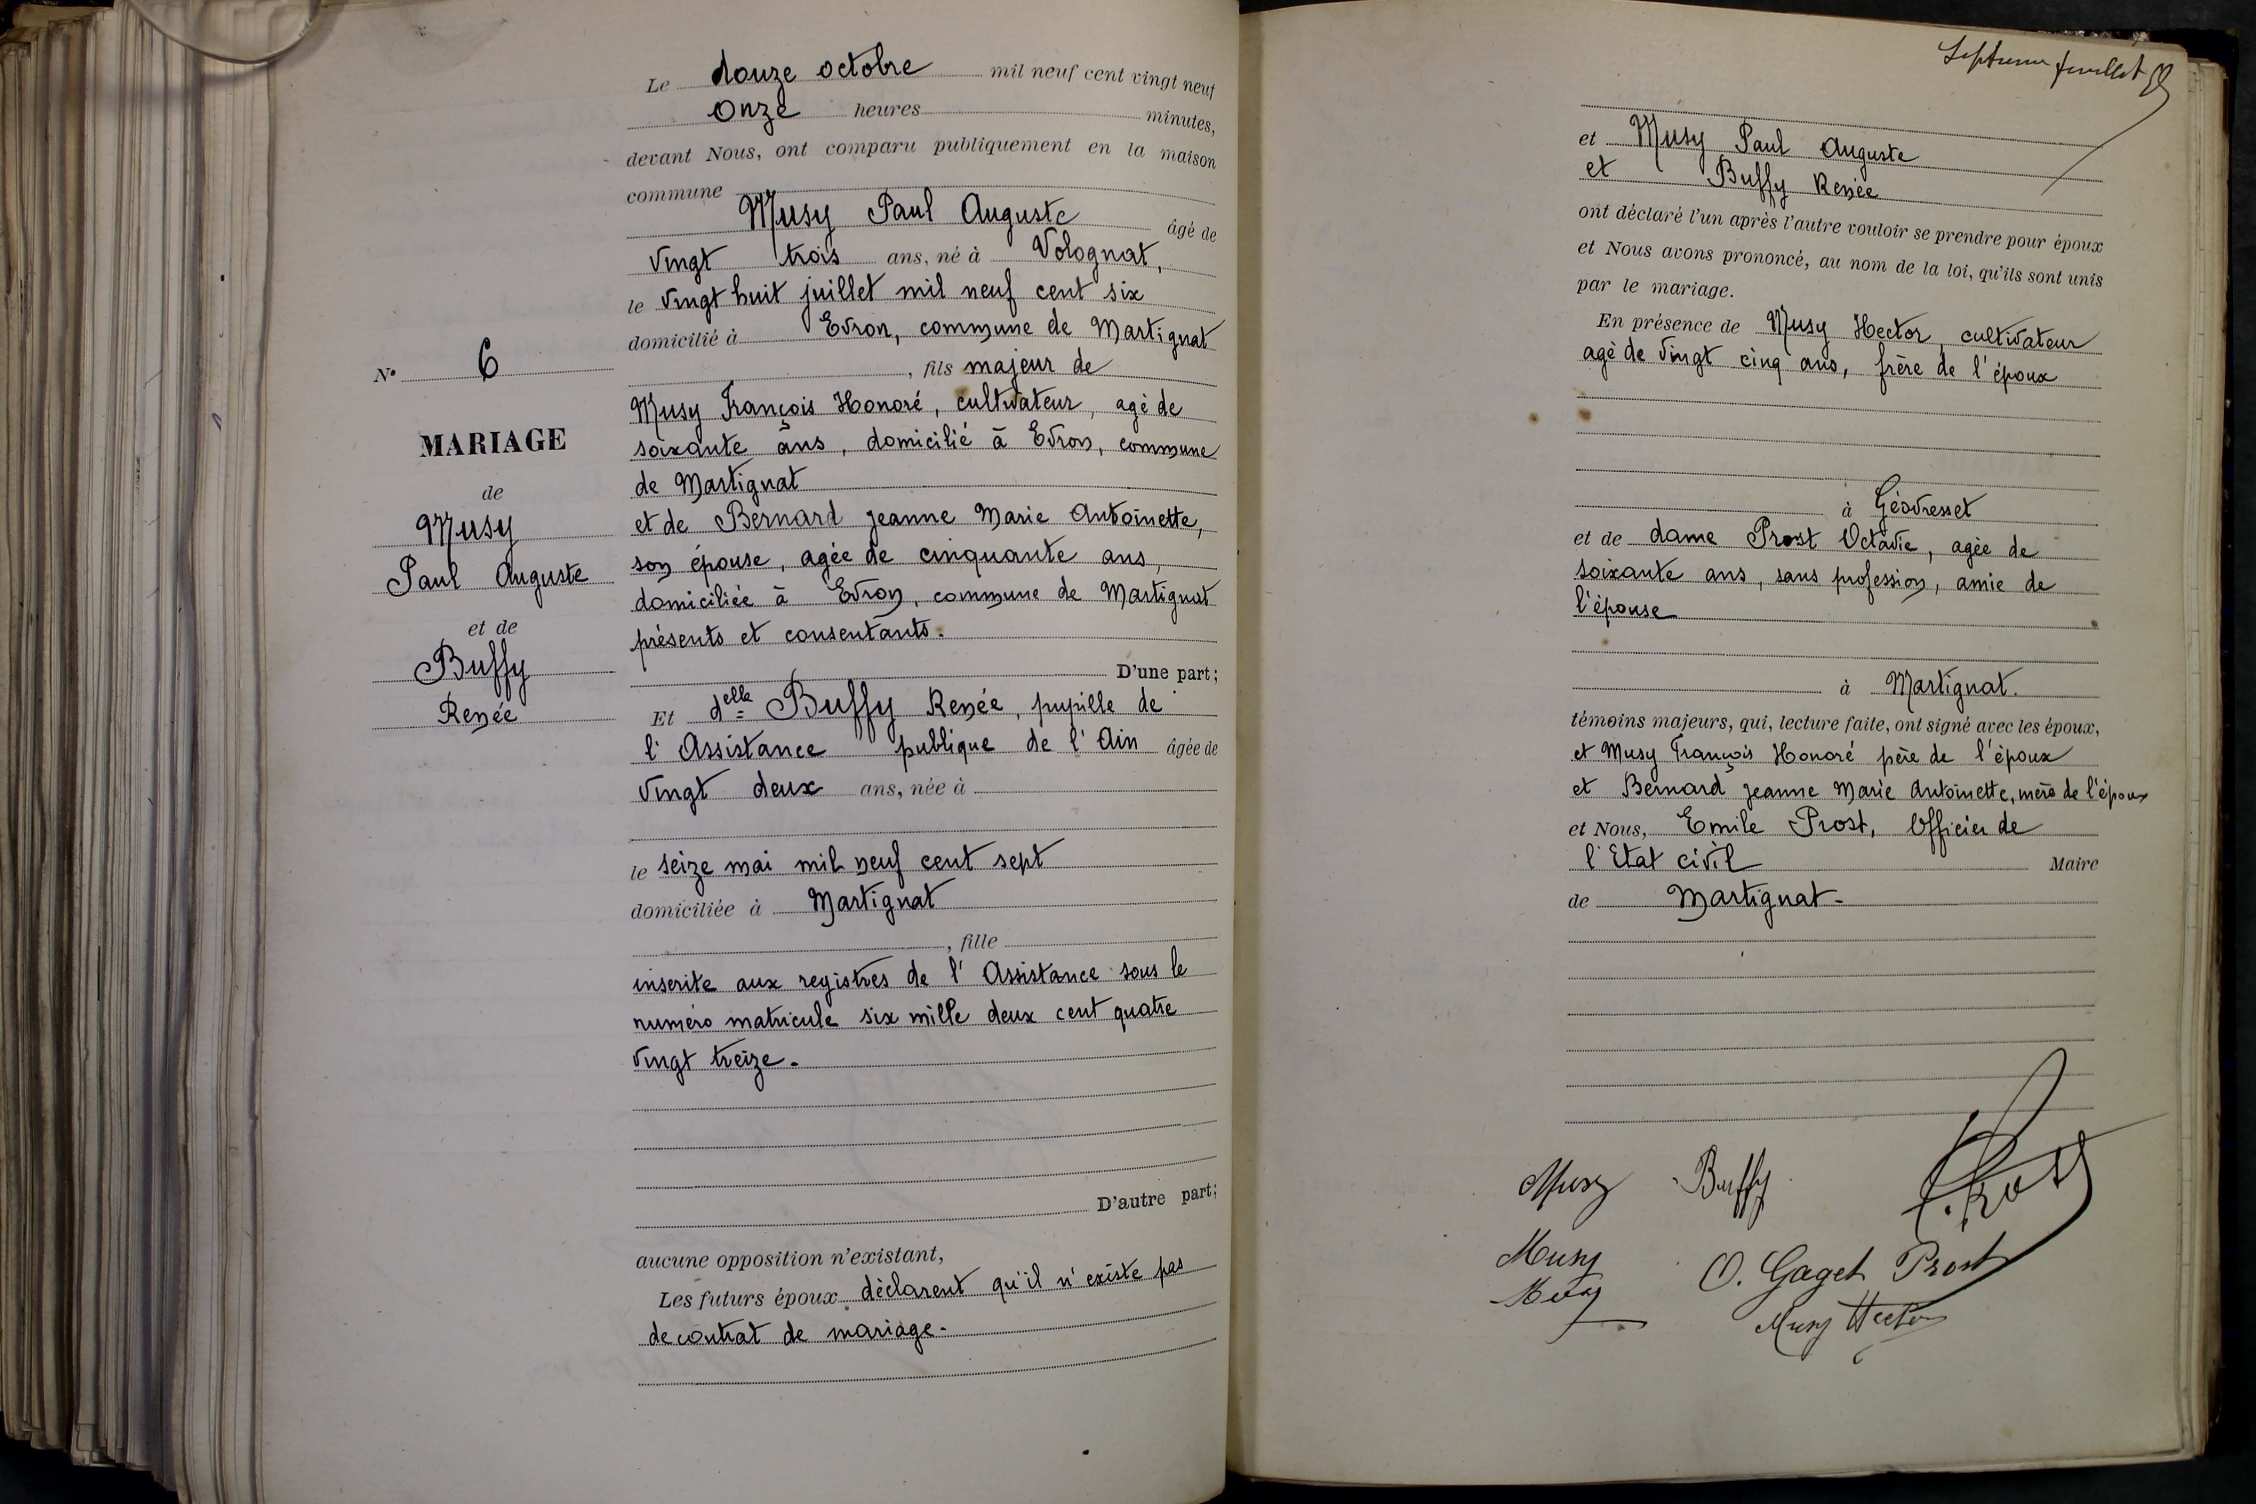 Le douze octobre mil neuf cent vingt neuf
onze heures minutes,
devant Nous, ont comparu publiquement en la maison
commune
Musy Paul Auguste âgé de
vingt trois ans, né à Volognat,
le vingt huit juillet mil neuf cent six
domicilié à Evron, commune de Martignat
, fils majeur de
Musy François Honoré, cultivateur, agé de
soixante ans, domicilié à Evron, commune
de Martignat
et de Bernard Jeanne Marie Antoinette,
son épouse, agée de cinquante ans,
domiciliée à Evron, commune de Martignat
présents et consentants.
D'une part;
Et delle Buffy Renée, pupille de
l'Assistance publique de l'Ain âgée de
vingt deux ans, née à
le seize mai mil neuf cent sept
domiciliée à Martignat
, fille
inscrite aux registres de l'Assistance sous le
numéro matricule six mille deux cent quatre
vingt treize.
D'autre part;
aucune opposition n'existant,
Les futurs époux déclarent qu'il n'existe pas
de contrat de mariage.
N° 6
MARIAGE
de
Musy
Paul Auguste
et de
Buffy
Renée
Septième feuillet
et Musy Paul Auguste
et Buffy Renée
ont déclaré l'un après l'autre vouloir se prendre pour époux
et Nous avons prononcé, au nom de la loi, qu'ils sont unis
par le mariage.
En présence de Musy Hector, cultivateur
agé de vingt cinq ans, frère de l'époux
à Géovresset
et de dame Prost Octavie, agée de
soixante ans, sans profession, amie de
l'épouse
à Martignat.
témoins majeurs, qui, lecture faite, ont signé avec les époux,
et Musy François Honoré père de l'époux
et Bernard Jeanne Marie Antoinette, mère de l'époux
et Nous, Emile Prost, Officier de
l'Etat civil Maire
de Martignat-
Musy Buffy E. Prost
Musy O. Gaget Prost
Musy Musy Hector